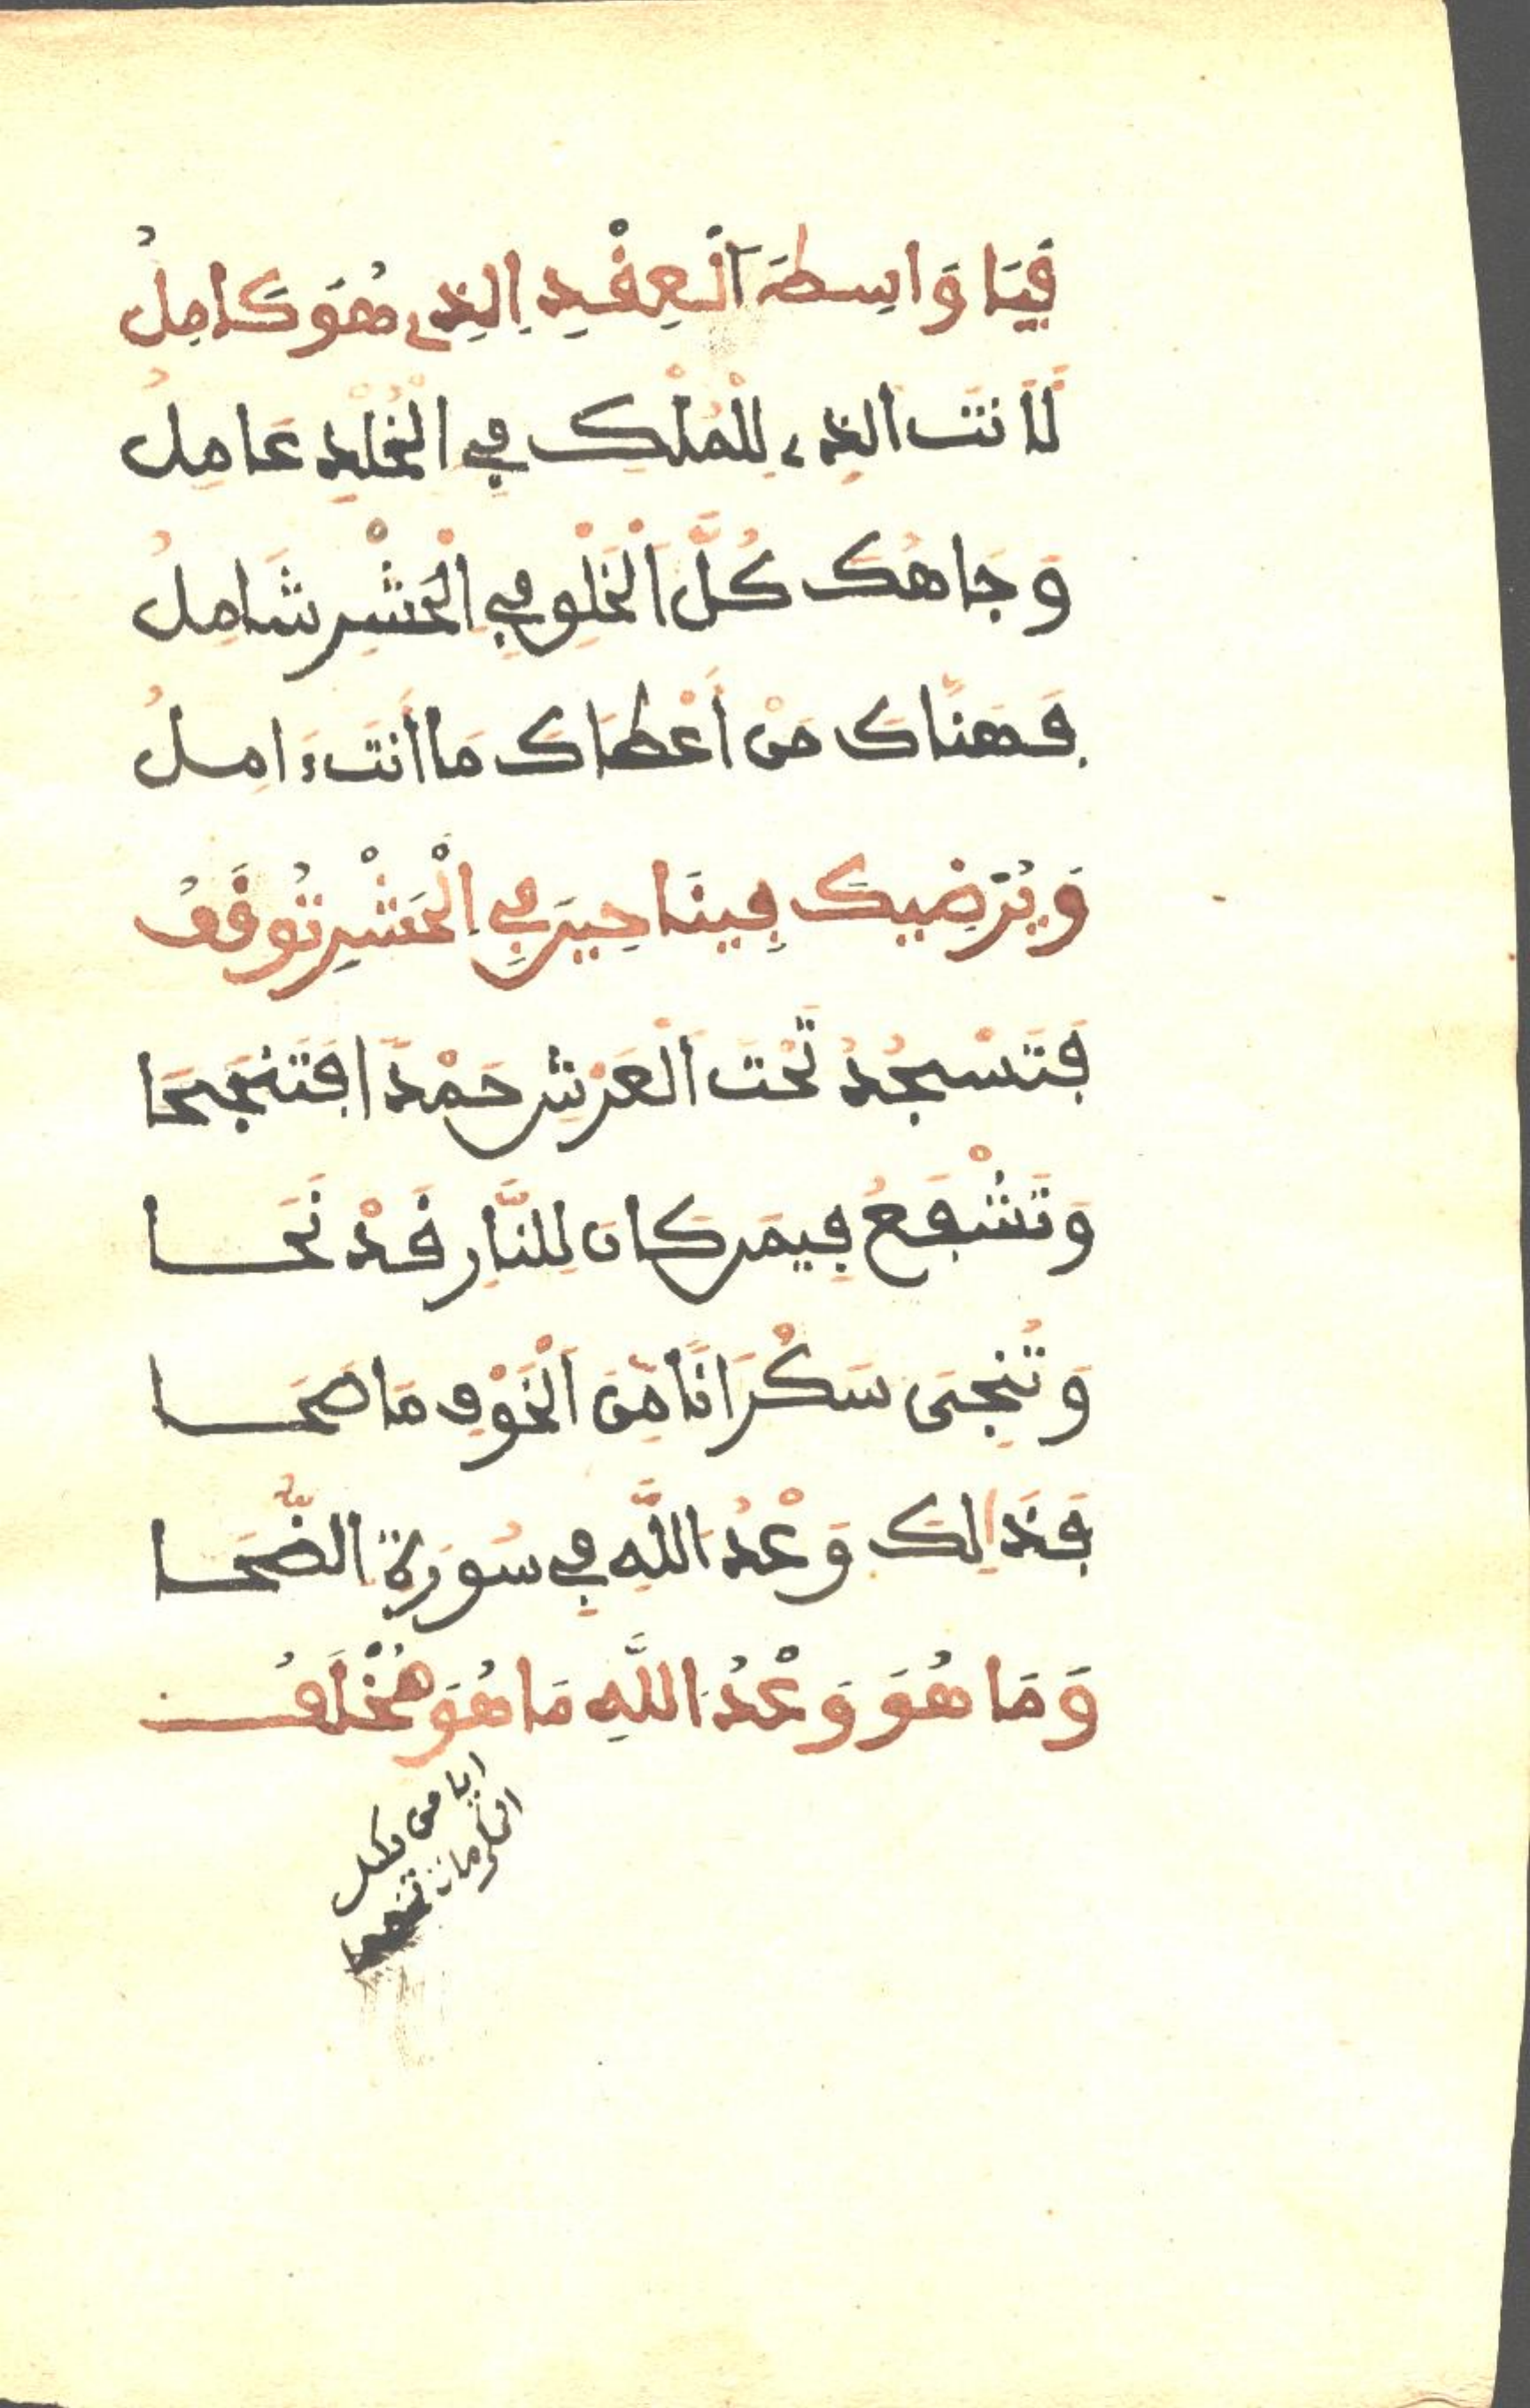 فَيَا وَاسِطَةَ الْعِقْدِ الذِي هُوَ كَامِلُ
لَأَنتَ الذِي لِلْمُلْكِ فِي الْخُلْدِ عَامِلُ
وَجَاهُكَ كُلَّ الْخَلْقِ فِي الْحَشْرِ شَامِلُ
فَهَنَّاكَ مَنْ أَعْطَاكَ مَا أَنتَ ءَامِلُ
وَيُرْضِيكَ فِينَا حِينَ فِي الْحَشْرِ تُوقَفُ
فَتَسْجُدُ تَحْتَ الْعَرْشِ حَمْدًا فَتَنجَحَا
وَتَشْفَعُ فِيمَن كَانَ لِلنَّارِ قَدْ نَحَا
وَتُنجِى سَكْرَانًا مِّنَ الْخَوْفِ مَا صَحَا
فَذَالِكَ وَعْدُ اللَّهِ فِي سُورَةِ الضُّحَا
وَمَا هُوَ وَعْدُ اللَّهِ مَا هُوَ مُخْلَفُ
ايا من